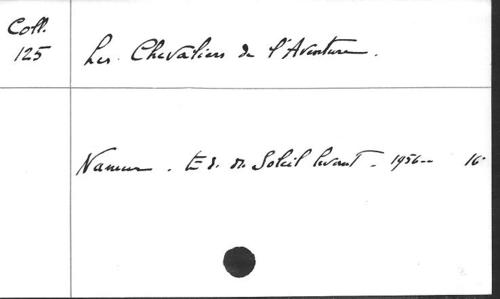 Coll.
125
Les Chevaliers de l'Aventure.
Namur. Ed. du Soleil levant. 1956-- 16°